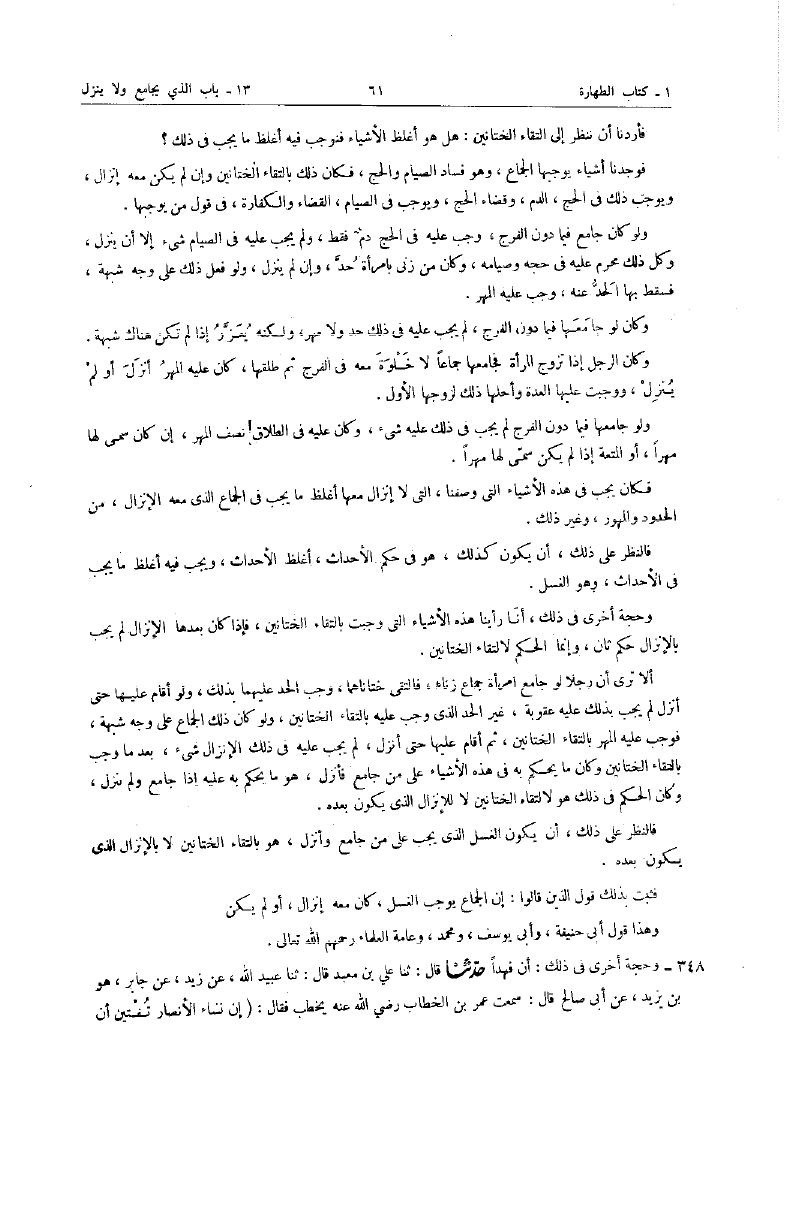 ١ - كتاب الطهارة ٦١ ١٣ - باب الذي يجامع ولا ينزل
فأردنا أن ننظر إلى التقاء الختانين : هل هو أغلظ الأشياء فنوجب فيه أغلظ ما يجب فى ذلك ؟
فوجدنا أشياء يوجبها الجماع ، وهو فساد الصيام والحج ، فكان ذلك بالتقاء الختانين وإن لم يكن معه إنزال ،
ويوجب ذلك فى الحج ، الدم ، وقضاء الحج ، ويوجب فى الصيام ، القضاء والكفارة ، فى قول من يوجبها .
ولو كان جامع فيما دون الفرج ، وجب عليه فى الحج دم فقط ، ولم يجب عليه فى الصيام شىء إلا أن ينزل ،
وكل ذلك محرم عليه فى حجه وصيامه ، وكان من زنى بامرأة حُدَّ ، وإن لم ينزل ، ولو فعل ذلك على وجه شبهة ،
فسقط بها الحدُّ عنه ، وجب عليه المهر .
وكان لو جامَعَها فيما دون الفرج ، لم يجب عليه فى ذلك حد ولا مهر، ولكنه يُعَزَّرُ إذا لم تكن هناك شبهة .
وكان الرجل إذا تزوج المرأة فجامعها جماعاً لا خَلْوَةَ معه فى الفرج ثم طلقها ، كان عليه المهرُ أنزَلَ أو لمْ
يُنزِلْ ، ووجبت عليها العدة وأحلها ذلك لزوجها الأول .
ولو جامعها فيما دون الفرج لم يجب فى ذلك عليه شىء ، وكان عليه فى الطلاق نصف المهر ، إن كان سمى لها
مهراً ، أو المتعة إذا لم يكن سمّى لها مهراً .
فكان يجب فى هذه الأشياء التى وصفنا ، التى لا إنزال معها أغلظ ما يجب فى الجماع الذى معه الإنزال ، من
الحدود والمهور ، وغير ذلك .
فالنظر على ذلك ، أن يكون كذلك ، هو فى حكم الأحداث ، أغلظ الأحداث ، ويجب فيه أغلظ ما يجب
فى الأحداث ، وهو الغسل .
وحجة أخرى فى ذلك ، أنّا رأينا هذه الأشياء التى وجبت بالتقاء الختانين ، فإذا كان بعدها الإنزال لم يجب
بالإنزال حكم ثان ، وإنما الحكم لالتقاء الختانين .
ألا ترى أن رجلا لو جامع امرأة جماع زناء ، فالتقى ختاناهما ، وجب الحد عليهما بذلك ، ولو أقام عليها حتى
أنزل لم يجب بذلك عليه عقوبة ، غير الحد الذى وجب عليه بالتقاء الختانين ، ولو كان ذلك الجماع على وجه شبهة ،
فوجب عليه المهر بالتقاء الختانين ، ثم أقام عليها حتى أنزل ، لم يجب عليه فى ذلك الإنزال شىء ، بعد ما وجب
بالتقاء الختانين وكان ما يحكم به فى هذه الأشياء على من جامع فأنزل ، هو ما يحكم به عليه إذا جامع ولم ينزل ،
وكان الحكم فى ذلك هو لالتقاء الختانين لا للإنزال الذى يكون بعده .
فالنظر على ذلك ، أن يكون الغسل الذى يجب على من جامع وأنزل ، هو بالتقاء الختانين لا بالإنزال الذى
يكون بعده .
فثبت بذلك قول الذين قالوا : إن الجماع يوجب الغسل ، كان معه إنزال ، أو لم يكن
وهذا قول أبى حنيفة ، وأبى يوسف ، ومحمد ، وعامة العلماء رحمهم الله تعالى .
٣٤٨ - وحجة أخرى فى ذلك : أن فهداً حدثنا قال : ثنا علي بن معبد قال : ثنا عبيد الله ، عن زيد ، عن جابر ، هو
بن يزيد ، عن أبى صالح قال : سمعت عمر بن الخطاب رضي الله عنه يخطب فقال : ( إن نساء الأنصار تُفْتين أن